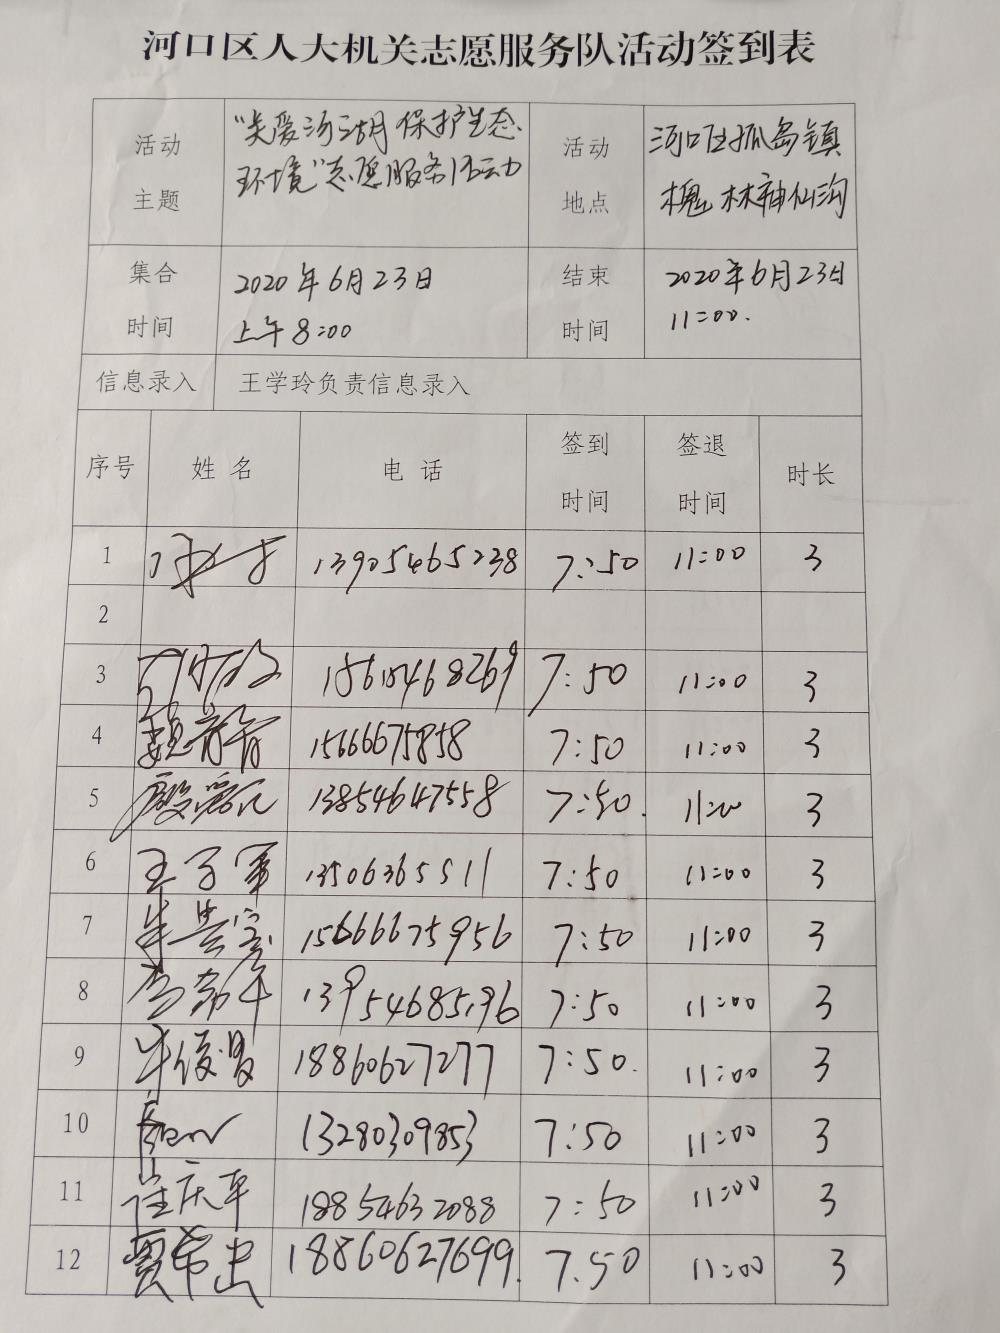 河口区人大机关志愿服务队活动签到表
活动
主题
"关爱河湖 保护生态
环境"志愿服务活动
活动
地点
河口区孤岛镇
槐林神仙沟
集合
时间
2020年6月23日
上午8:00
结束
时间
2020年6月23日
11:00.
信息录入 王学玲负责信息录入
序号 姓名 电话 签到时间 签退时间 时长
1 13905465238 7:50 11:00 3
2
3 7:50 11:00 3
4 15666675858 7:50 11:00 3
5 13854647558 7:50. 11:00 3
6 王子军 13506365511 7:50 11:00 3
7 15666675956 7:50 11:00 3
8 13954685196 7:50 11:00 3
9 18860627277 7:50. 11:00 3
10 13280309853 7:50 11:00 3
11 庆军 18854632088 7:50 11:00 3
12 18860627699. 7.50 11:00 3